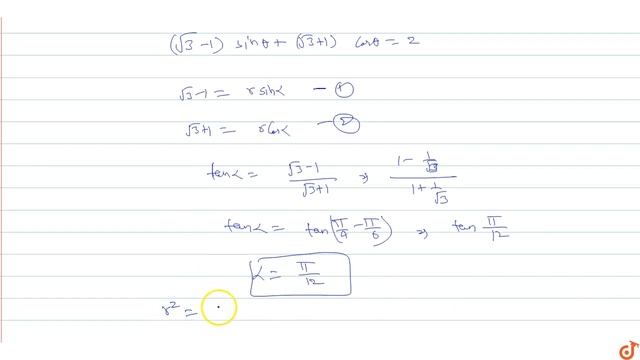 (√3 -1) sinθ + (√3+1) cosθ = 2
√3-1 = r sinα — ①
√3+1 = r cosα — ②
tanα = √3-1/√3+1 ⇒ 1 - 1/√3 / 1 + 1/√3
tanα = tan(π/4 - π/6) ⇒ tan π/12
α = π/12
r² =